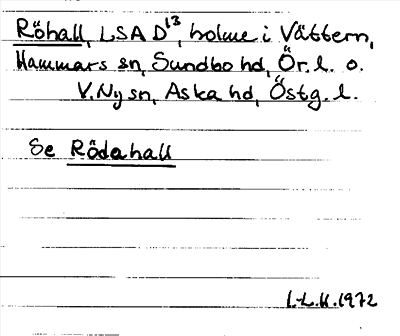 Röhall, LSA D13, holme i Vättern,
Hammars sn, Sundbo hd, Ör. l. o.
V. Ny sn, Aska hd, Östg. l.
Se Rödahall
I.-L.H. 1972